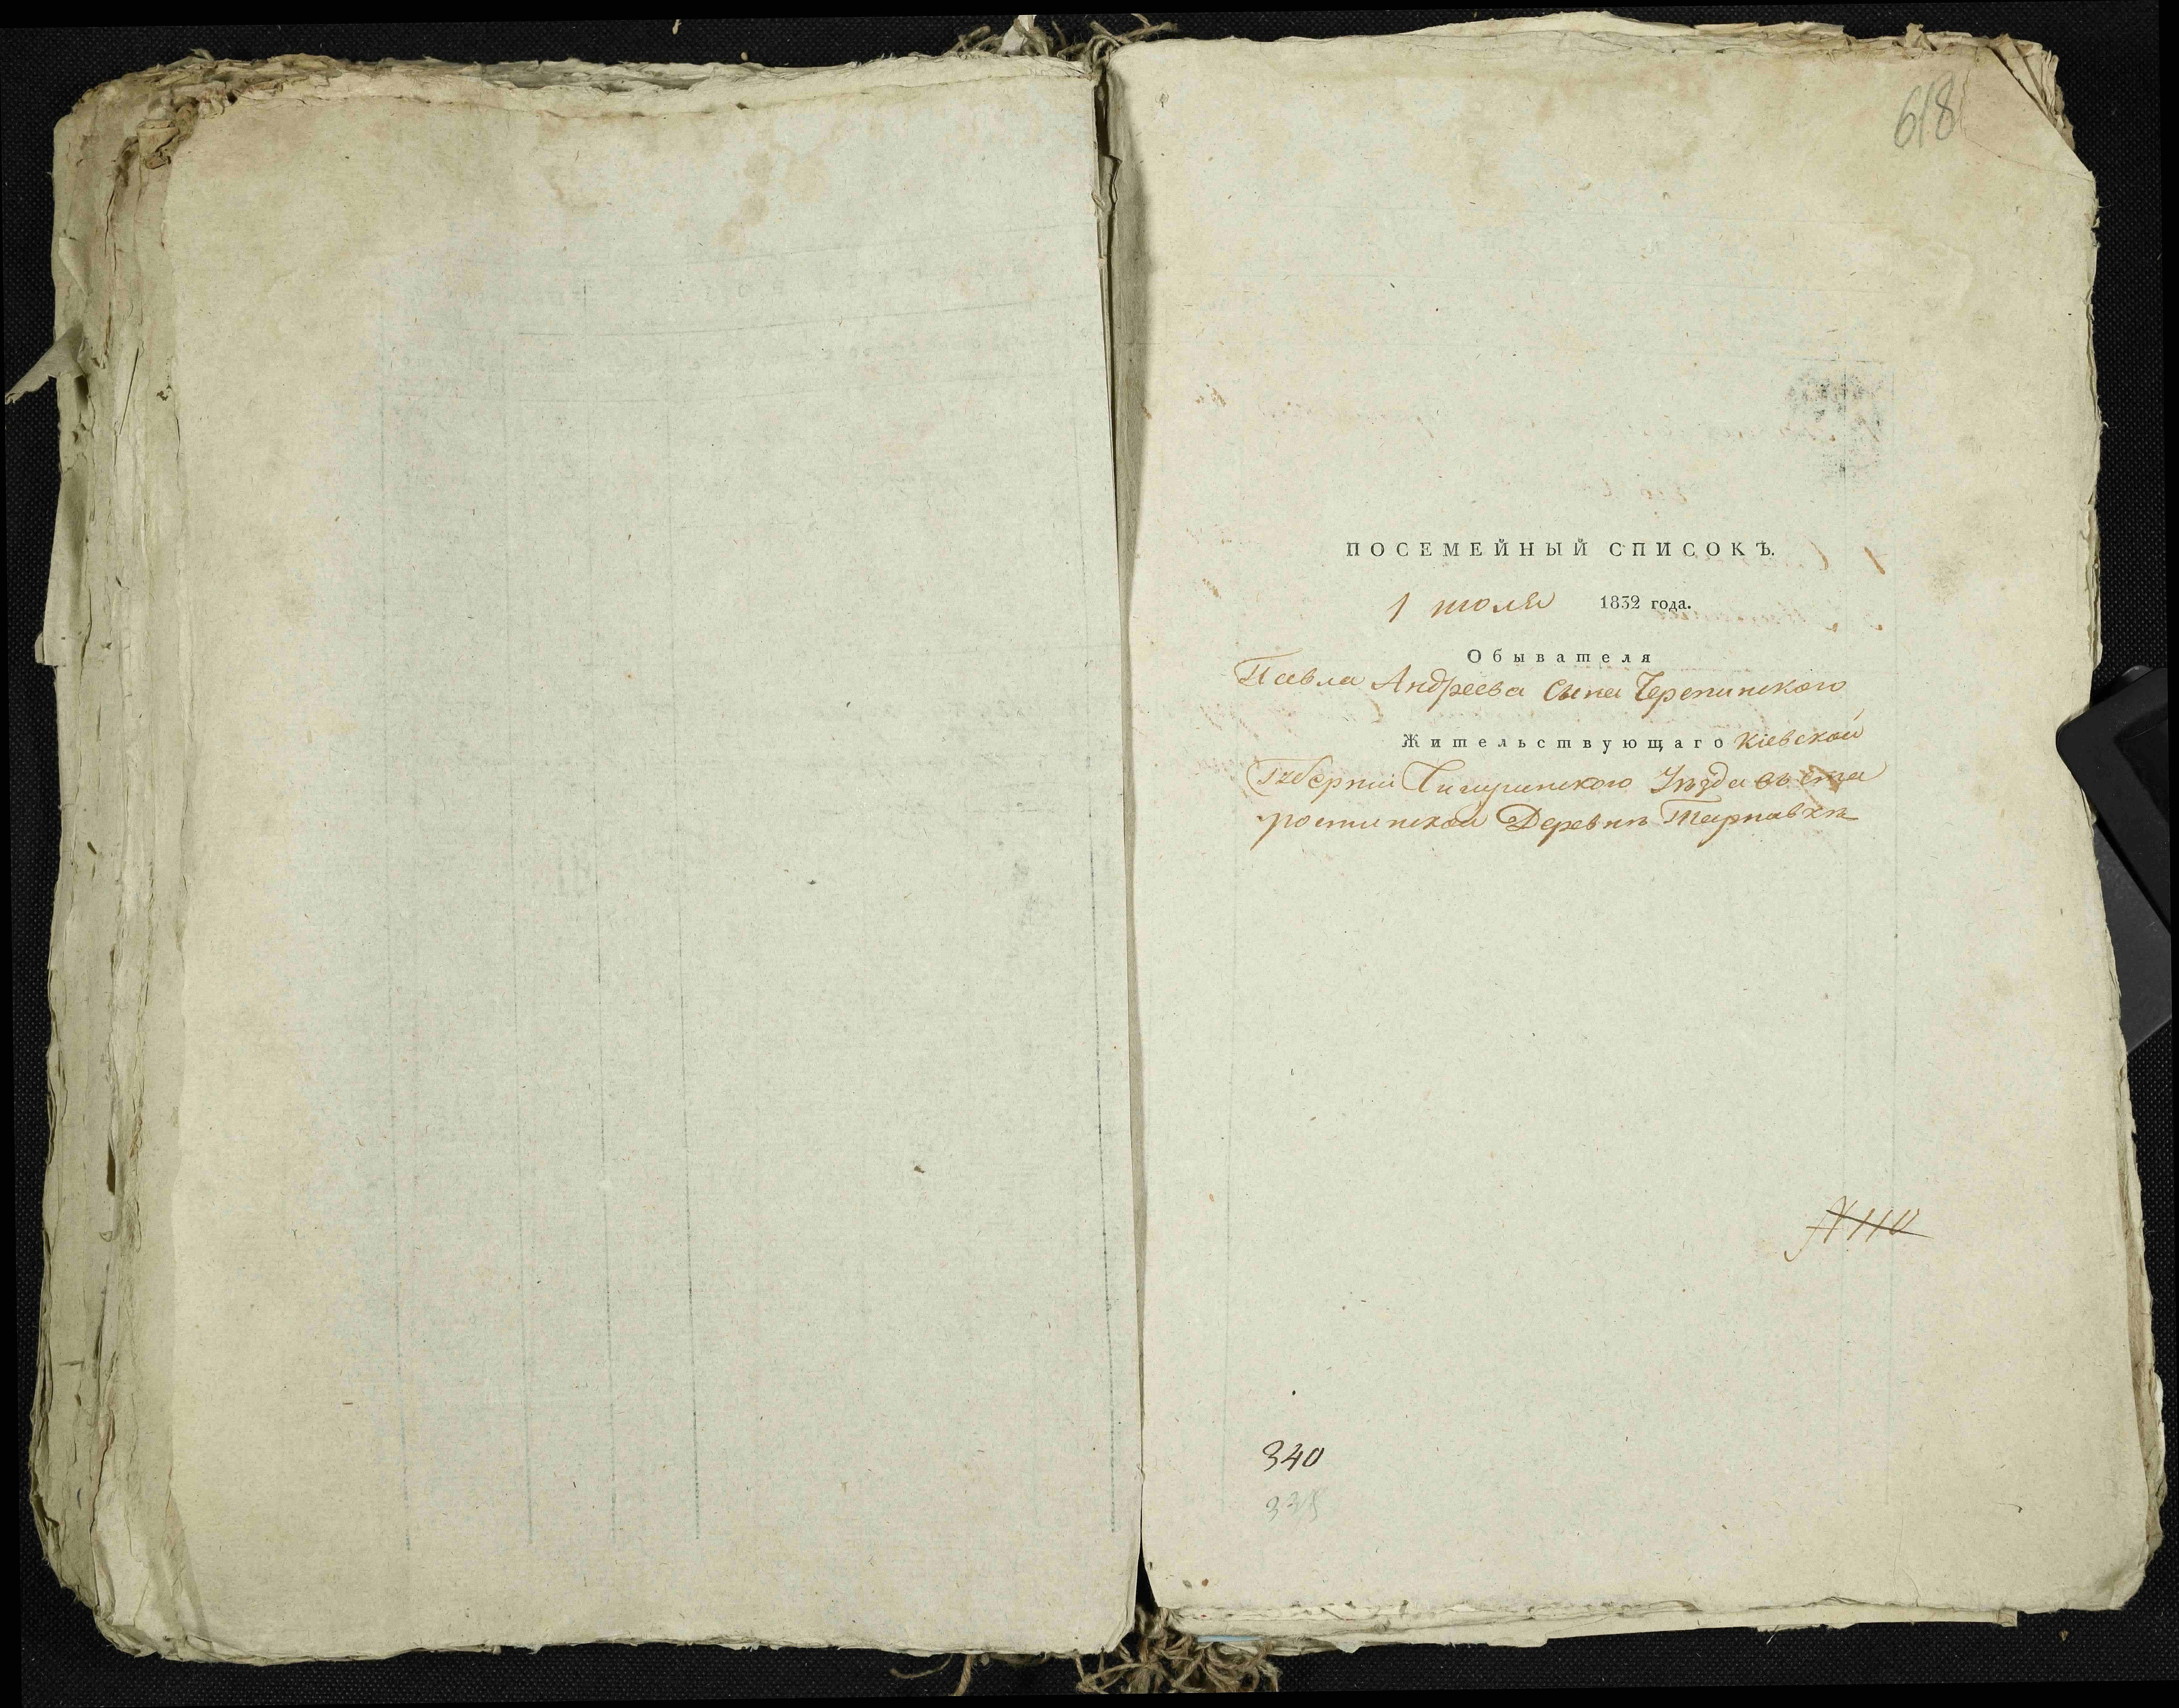 618
ПОСЕМЕЙНЫЙ СПИСОКЪ.
1 июля 1832 года.
Обывателя
Павла Андреева Сына Черепинского
Жительствующаго Киевской
Губернии Чигиринского Уѣзда въ ста
ростинской Деревнѣ Тарнавкѣ
N 110
340